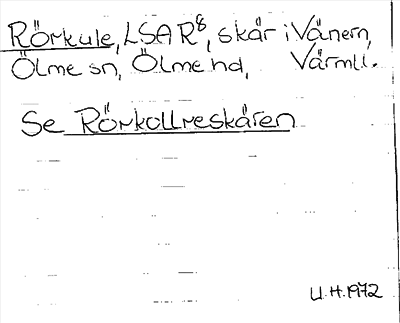 Rörkule, LSA R8, skär i Vänern,
Ölme sn, Ölme hd, Värml.
Se Rörkollreskären
U.H. 1972